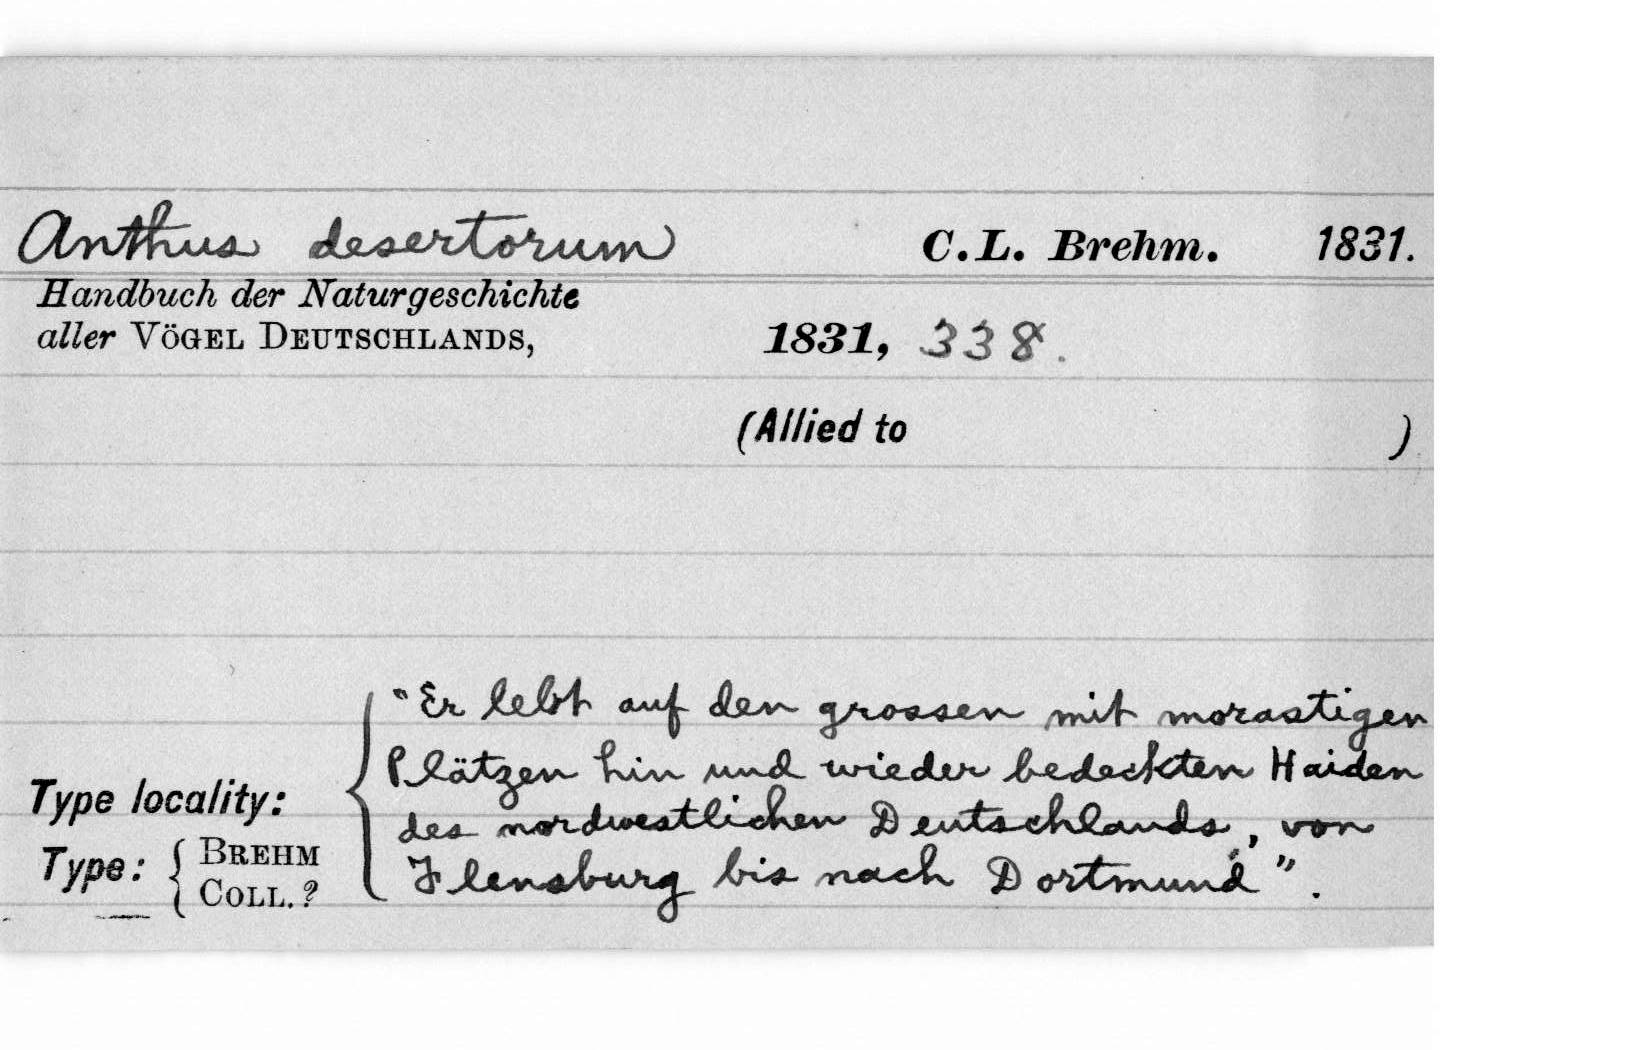 Anthus desertorum C.L. Brehm. 1831.
Handbuch der Naturgeschichte
aller VÖGEL DEUTSCHLANDS, 1831, 338.
(Allied to )
"Er lebt auf den grossen mit morastigen
Plätzen hin und wieder bedeckten Haiden
des nordwestlichen Deutschlands, von
Flensburg bis nach Dortmund".
Type locality:
Type: { BREHM
COLL. ?